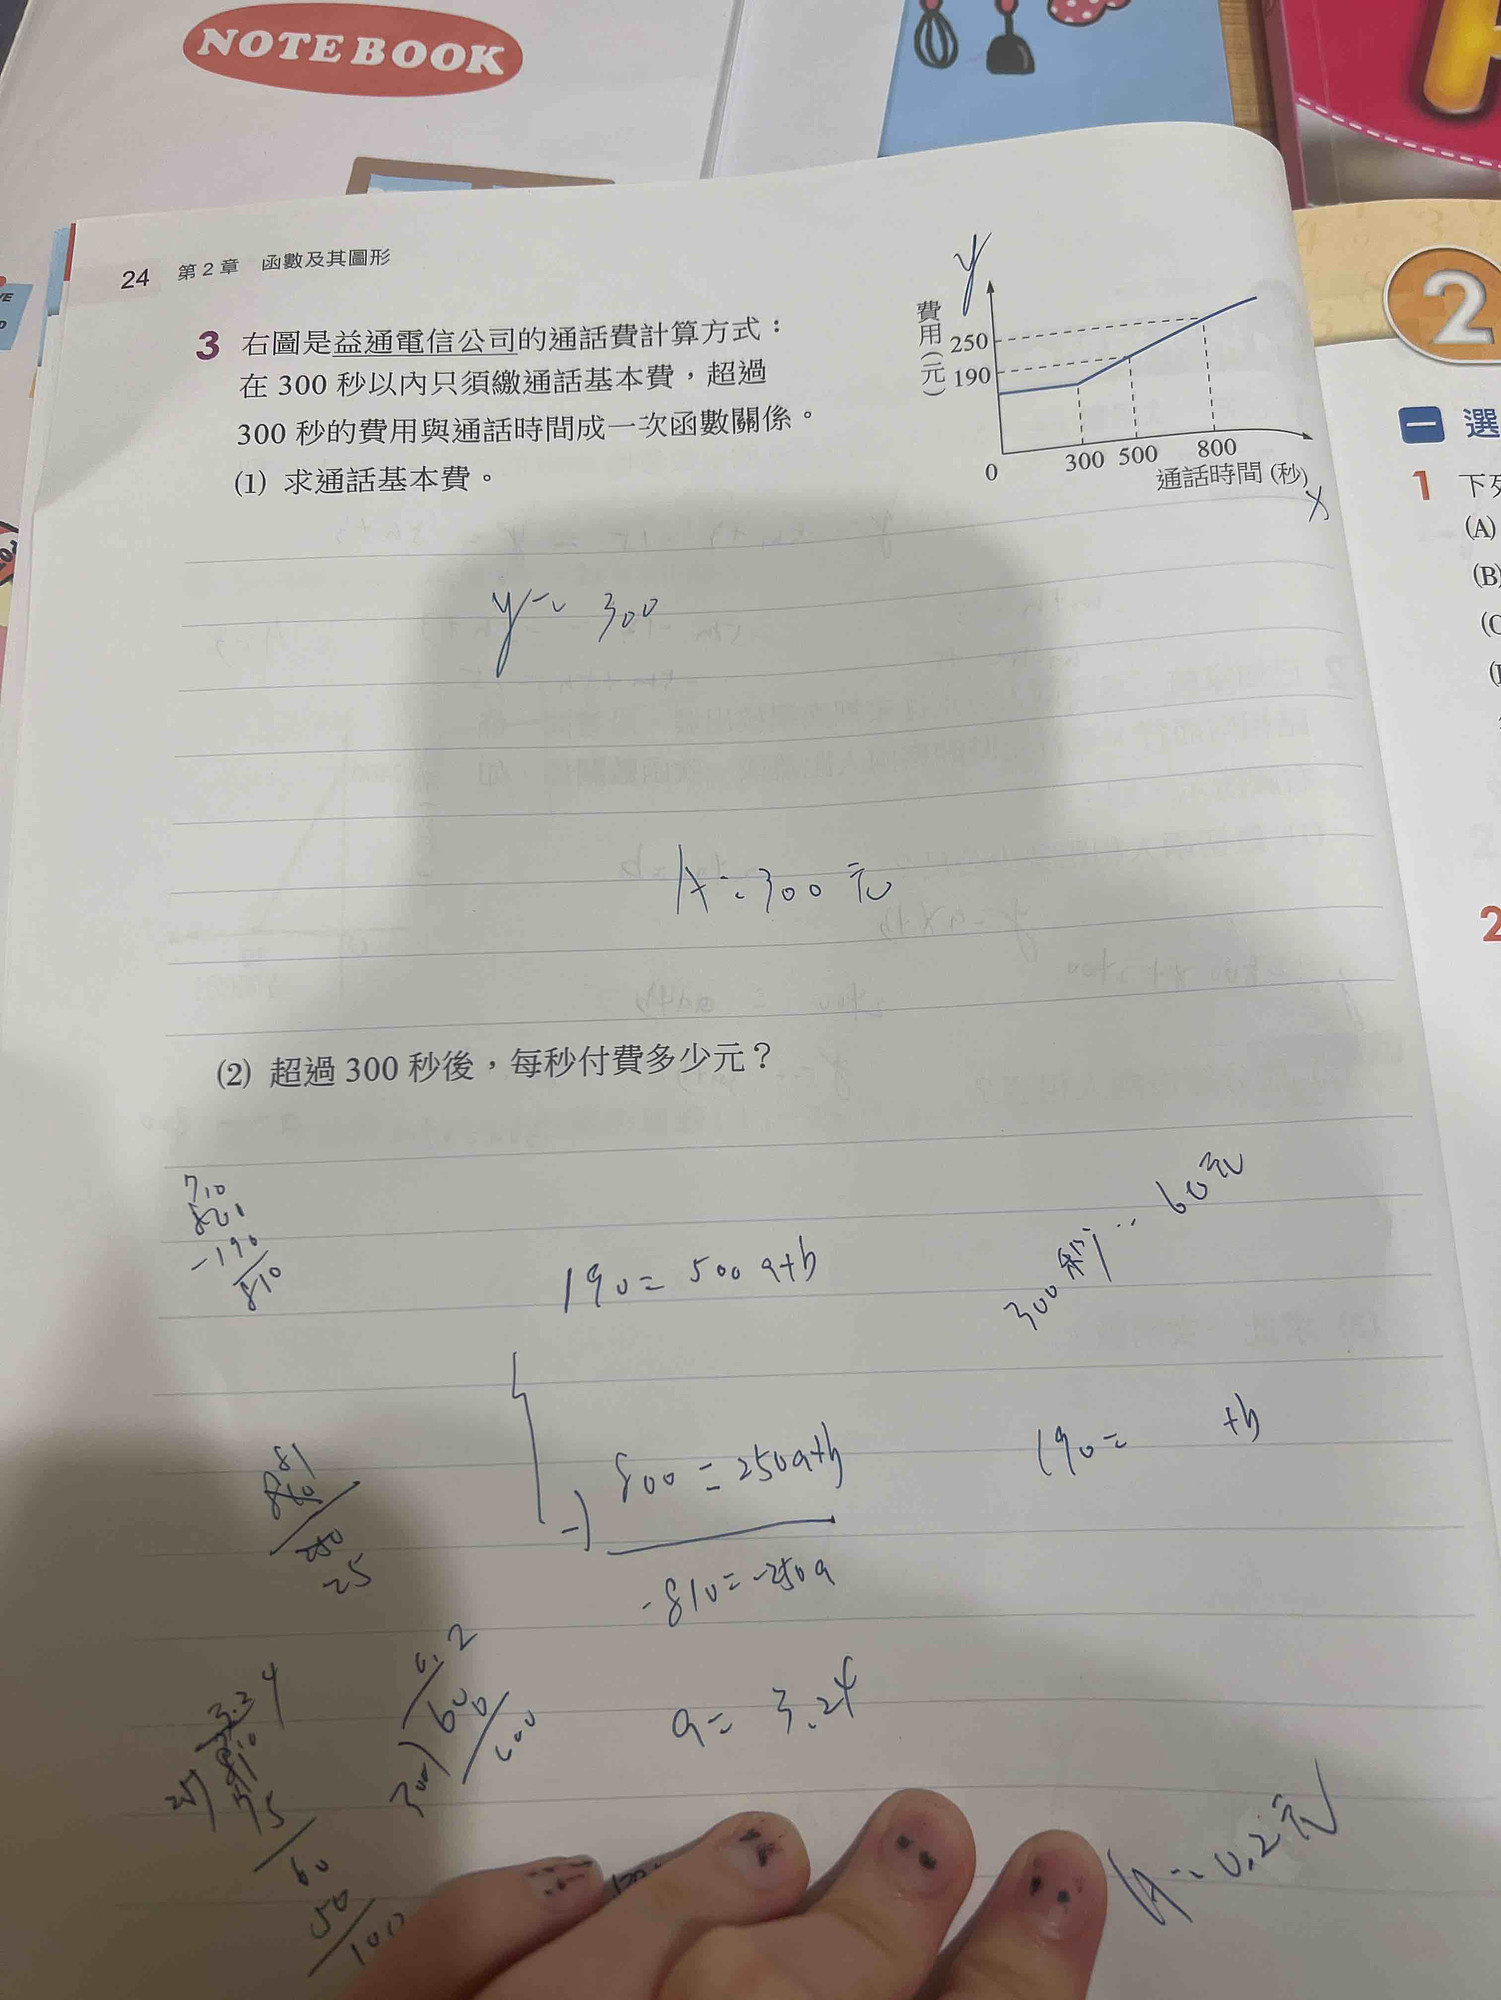 NOTEBOOK
24 第2章 函數及其圖形
3 右圖是益通電信公司的通話費計算方式：
在 300 秒以內只須繳通話基本費，超過
300 秒的費用與通話時間成一次函數關係。
(1) 求通話基本費。
y
費用(元)
250
190
0
300 500 800
通話時間(秒)
x
y= 300
A:300元
(2) 超過 300 秒後，每秒付費多少元？
190=500a+b
300秒..60元
800=250a+b
190= +b
-)
-810=-250a
a=3.24
A:0.2元
710
-190
810
81
25
0.2
300)600
600
3.24
75
60
50
100
2
一 選
1 下列
(A)
(B)
2